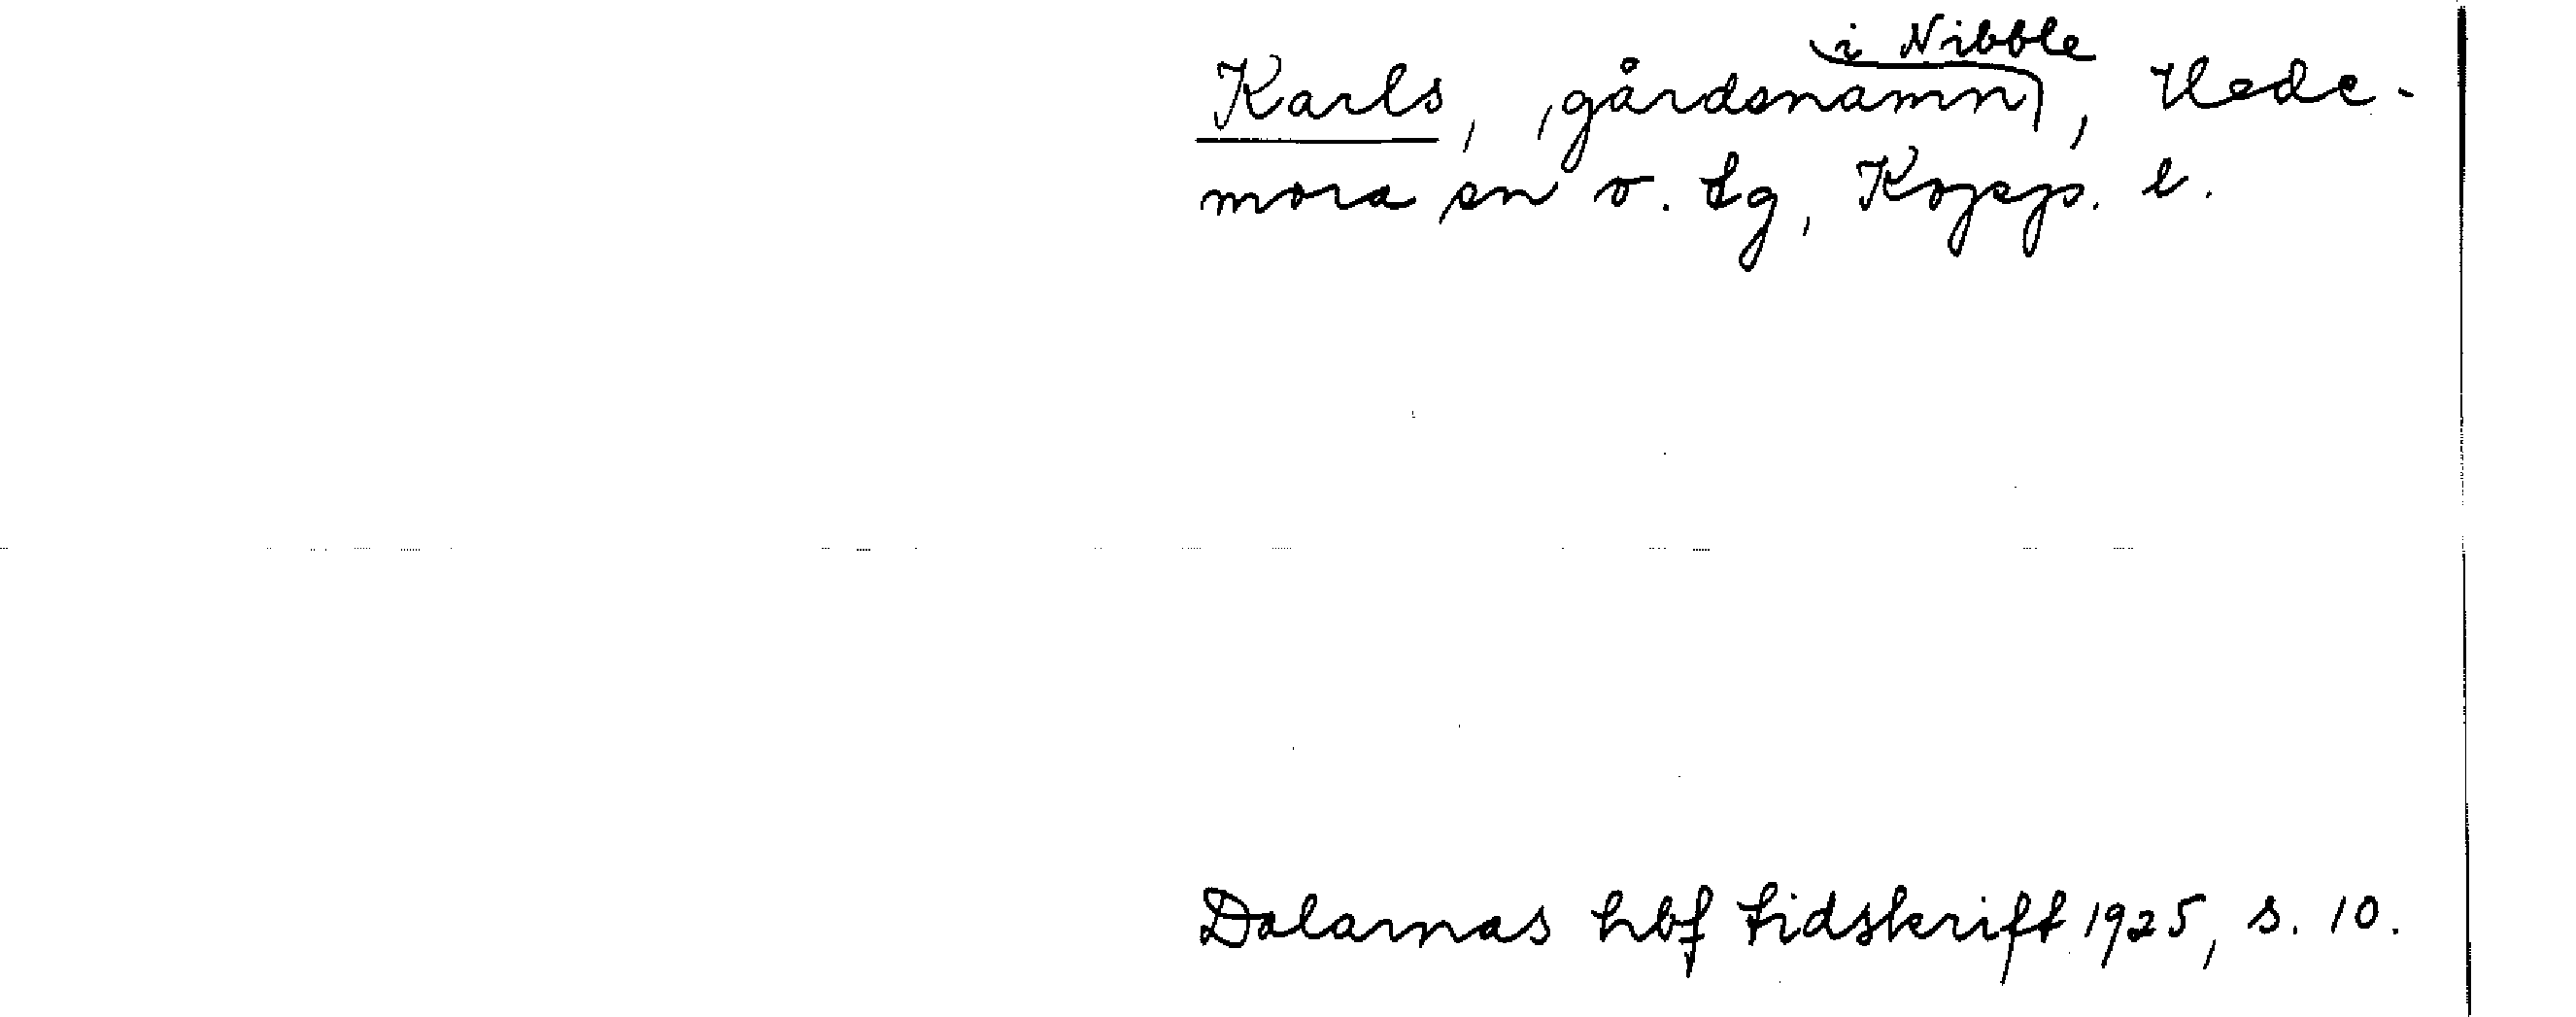 Karls, (gårdsnamn i Nibble), Hede-
mora sn o. tg, Kopp. l.
Dalarnas hbf tidskrift 1925, s. 10.